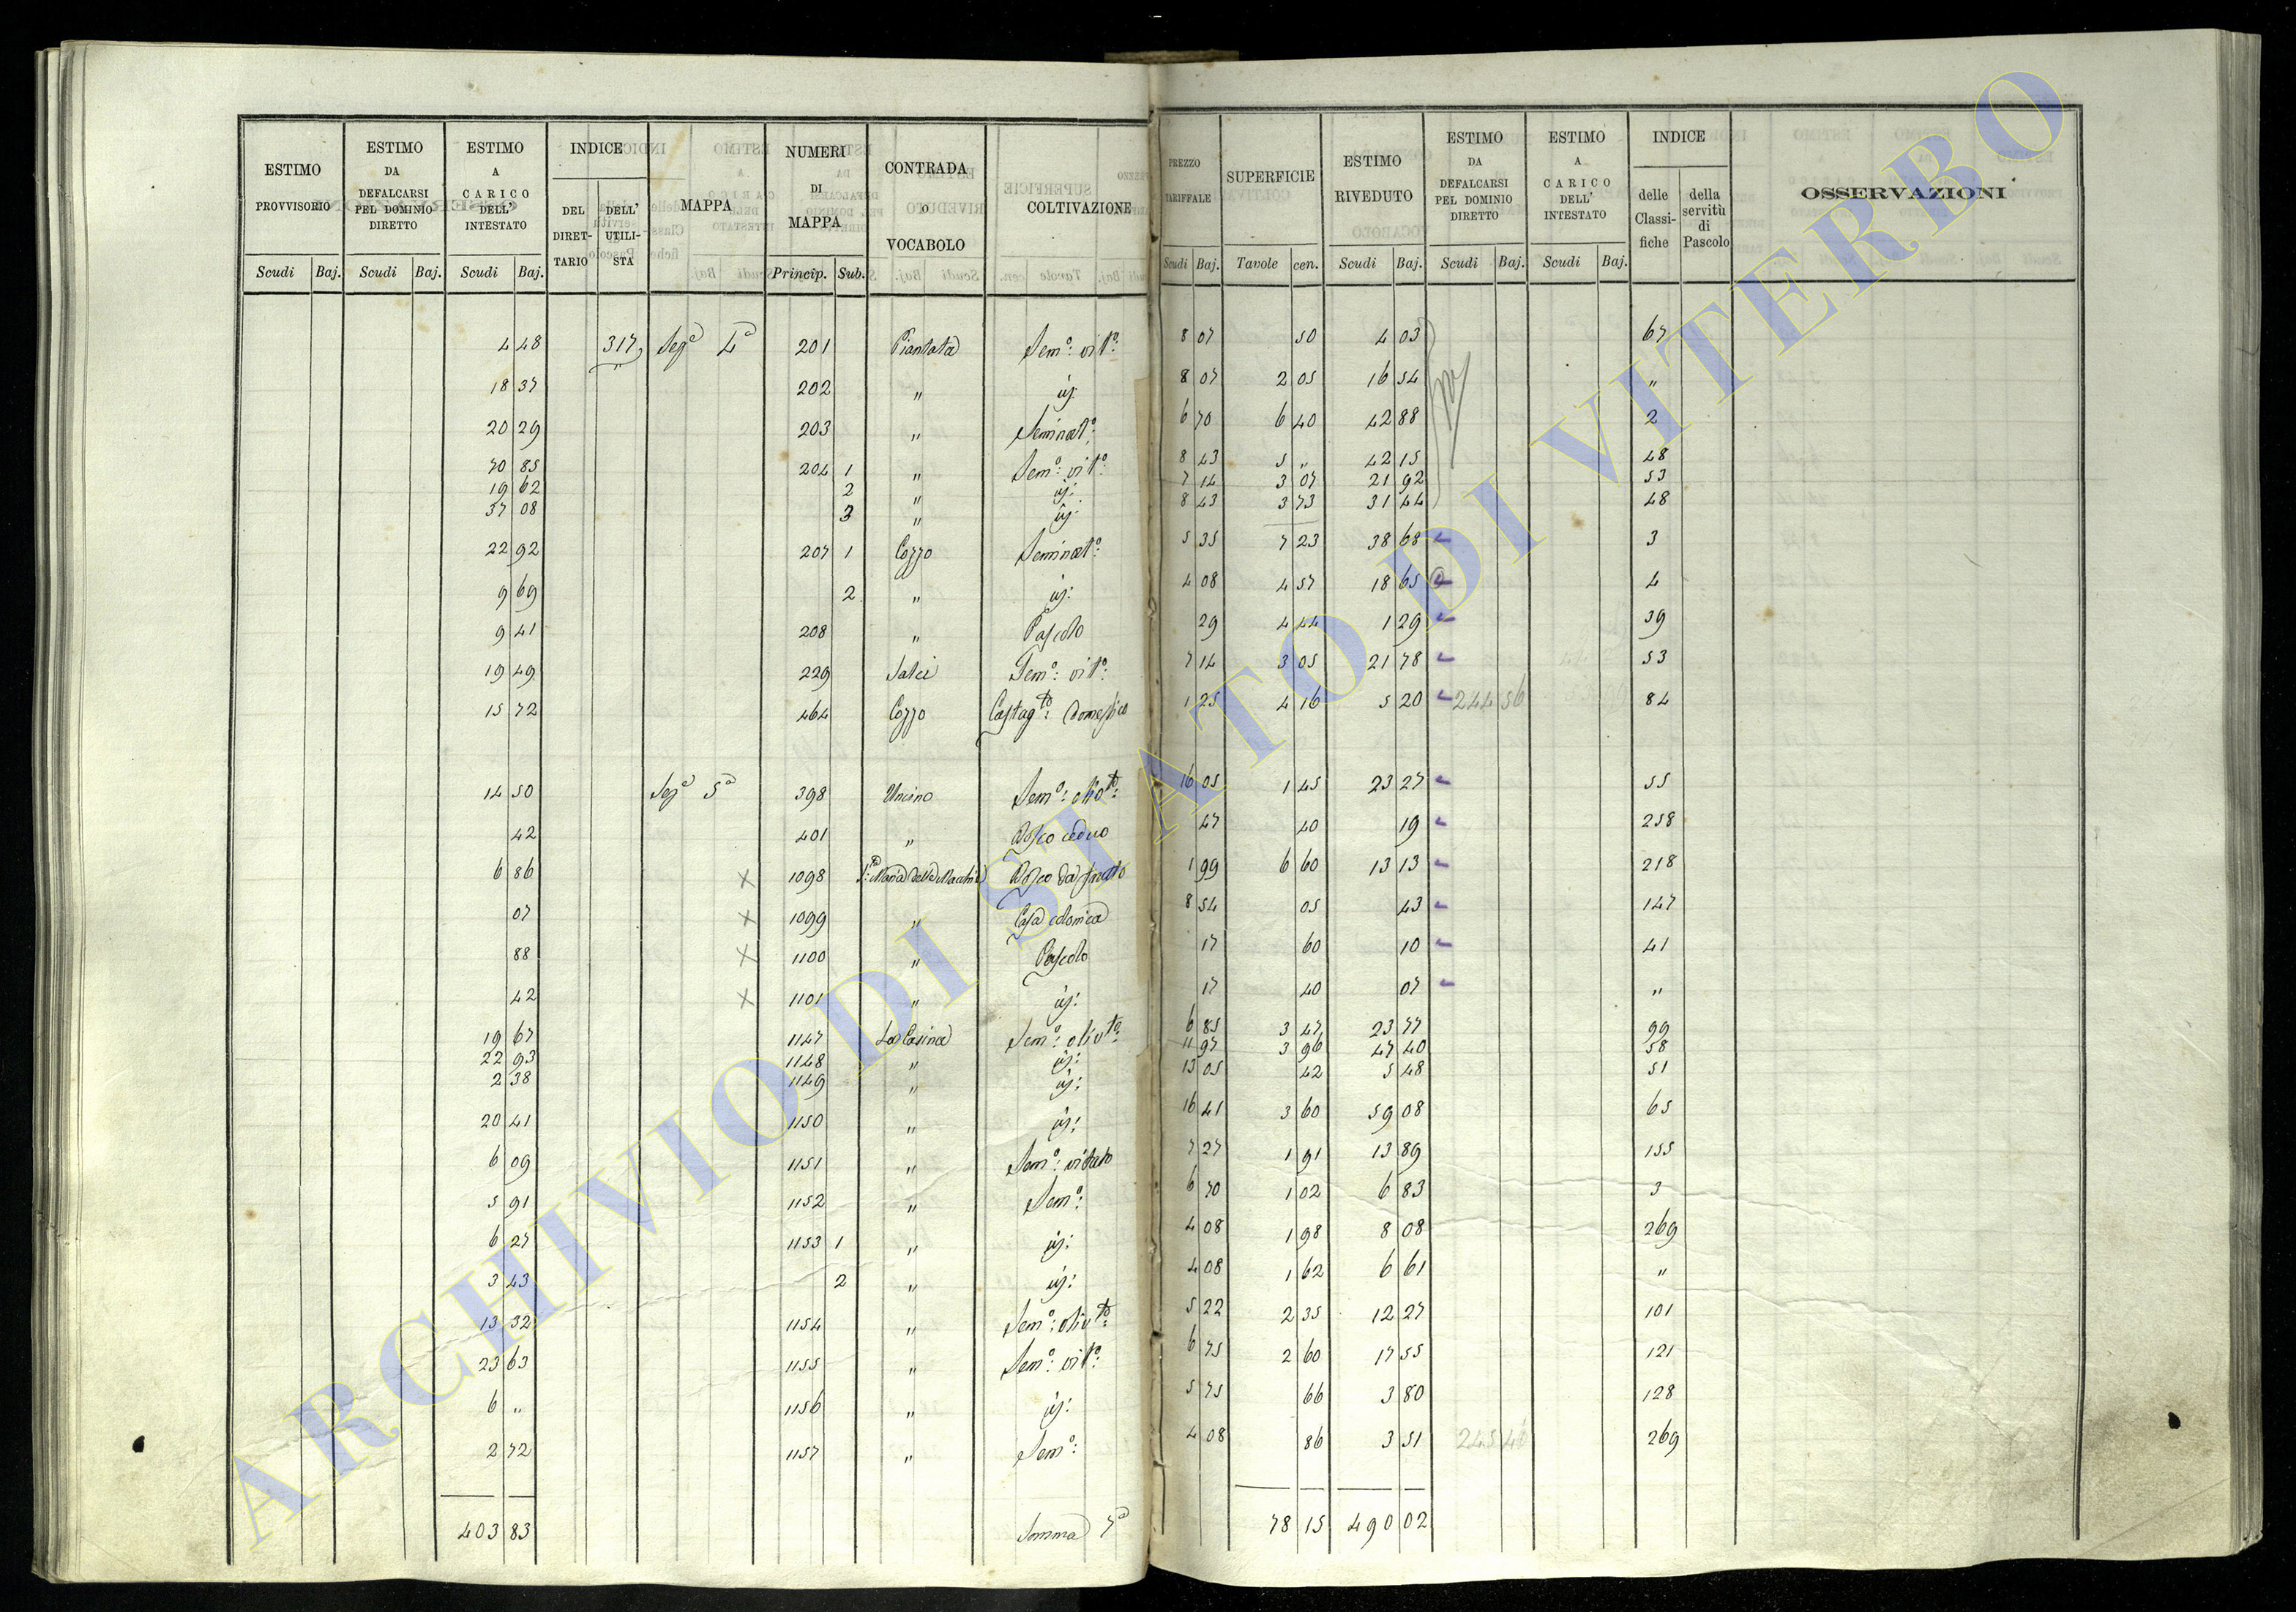 ESTIMO PROVVISORIO | ESTIMO DA DEFALCARSI PEL DOMINIO DIRETTO | ESTIMO A CARICO DELL' INTESTATO | INDICE | MAPPA | NUMERI DI MAPPA | CONTRADA O VOCABOLO | COLTIVAZIONE | PREZZO TARIFFALE | SUPERFICIE | ESTIMO RIVEDUTO | ESTIMO DA DEFALCARSI PEL DOMINIO DIRETTO | ESTIMO A CARICO DELL' INTESTATO | INDICE | OSSERVAZIONI
DEL DIRETTARIO | DELL' UTILISTA | delle Classifiche | della servitù di Pascolo
Scudi | Baj. | Scudi | Baj. | Scudi | Baj. | Princip. | Sub. | Scudi | Baj. | Tavole | cen. | Scudi | Baj. | Scudi | Baj. | Scudi | Baj.
4 48 | 317 | Sezª 4ª | 201 | Piantata | Semº: vitº: | 8 07 | 50 | 4 03 | 67
18 37 | 202 | " | id: | 8 07 | 2 05 | 16 54 | "
20 29 | 203 | " | Seminatº: | 6 70 | 6 40 | 42 88 | 2
70 85 | 204 1 | " | Semº: vitº: | 8 43 | 5 " | 42 15 | 48
19 62 | 2 | " | id: | 7 14 | 3 07 | 21 92 | 53
37 08 | 3 | " | id: | 8 43 | 3 73 | 31 44 | 48
22 92 | 207 1 | Cozzo | Seminatº: | 5 35 | 7 23 | 38 68 | 3
9 69 | 2 | " | id: | 4 08 | 4 57 | 18 65 | 4
9 41 | 208 | " | Pascolo | 29 | 4 44 | 1 29 | 39
19 49 | 229 | Salci | Semº: vitº: | 7 14 | 3 05 | 21 78 | 53
15 72 | 464 | Cozzo | Castagtº: domestico | 1 25 | 4 16 | 5 20 | 244 56 | 84
14 50 | Sezª 5ª | 398 | Uncino | Semº: olivtº: | 16 05 | 1 45 | 23 27 | 55
42 | 401 | " | Bosco ceduo | 47 | 40 | 19 | 258
6 86 | x | 1098 | Sª: Maria della Macchia | Bosco da frutto | 1 99 | 6 60 | 13 13 | 218
07 | x | 1099 | " | Casa colonica | 8 54 | 05 | 43 | 147
88 | x | 1100 | " | Pascolo | 17 | 60 | 10 | 41
42 | x | 1101 | " | id: | 17 | 40 | 07 | "
19 67 | 1147 | La Casina | Semº: olivtº: | 6 85 | 3 47 | 23 77 | 99
22 93 | 1148 | " | id: | 11 97 | 3 96 | 47 40 | 58
2 38 | 1149 | " | id: | 13 05 | 42 | 5 48 | 51
20 41 | 1150 | " | id: | 16 41 | 3 60 | 59 08 | 65
6 09 | 1151 | " | Semº: vitato | 7 27 | 1 91 | 13 89 | 155
5 91 | 1152 | " | Semº: | 6 70 | 1 02 | 6 83 | 3
6 27 | 1153 1 | " | id: | 4 08 | 1 98 | 8 08 | 269
3 43 | 2 | " | id: | 4 08 | 1 62 | 6 61 | "
13 32 | 1154 | " | Semº: olivtº: | 5 22 | 2 35 | 12 27 | 101
23 63 | 1155 | " | Semº: vitº: | 6 75 | 2 60 | 17 55 | 121
6 " | 1156 | " | id: | 5 75 | 66 | 3 80 | 128
2 72 | 1157 | " | Semº: | 4 08 | 86 | 3 51 | 245 46 | 269
403 83 | Somma 7ª | 78 15 | 490 02
ARCHIVIO DI STATO DI VITERBO